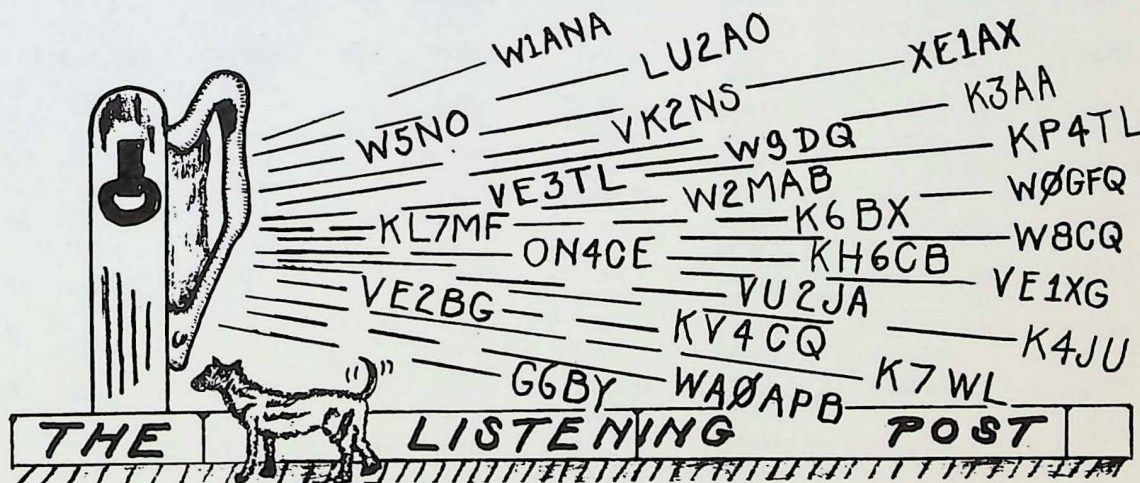 W1ANA
LU2AO
XE1AX
W5NO
VK2NS
K3AA
W9DQ
KP4TL
VE3TL
W2MAB
WØGFQ
KL7MF
K6BX
W8CQ
ON4CE
KH6CB
VE2BG
VU2JA
VE1XG
KV4CQ
K4JU
G6BY
WAØAPB
K7WL
THE LISTENING POST